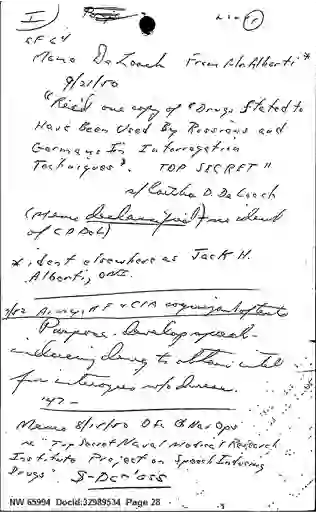 I)
SF 64
Memo DeLoach From Mr. Alberti *
9/21/50
"Rec'd one copy of "Drugs Stated to
Have Been Used By Russians and
Germans In Interrogation
Techniques". TOP SECRET"
s/ Cartha D. DeLoach
(Memo declassified + no ident
of CDDeL)
* ident elsewhere as Jack H.
Alberti, ONI.
Army, AF & CIA cognizant of tests
Purpose - develop speech-
inducing drug to obtain intel
for interoges w/o duress.
'47 -
Memo 8/15/50 Ofc of Nav Ops
re "Top Secret Naval Medical Research
Institute Project on Speech Inducing
Drugs"
NW 65994 Docid:32989534 Page 28